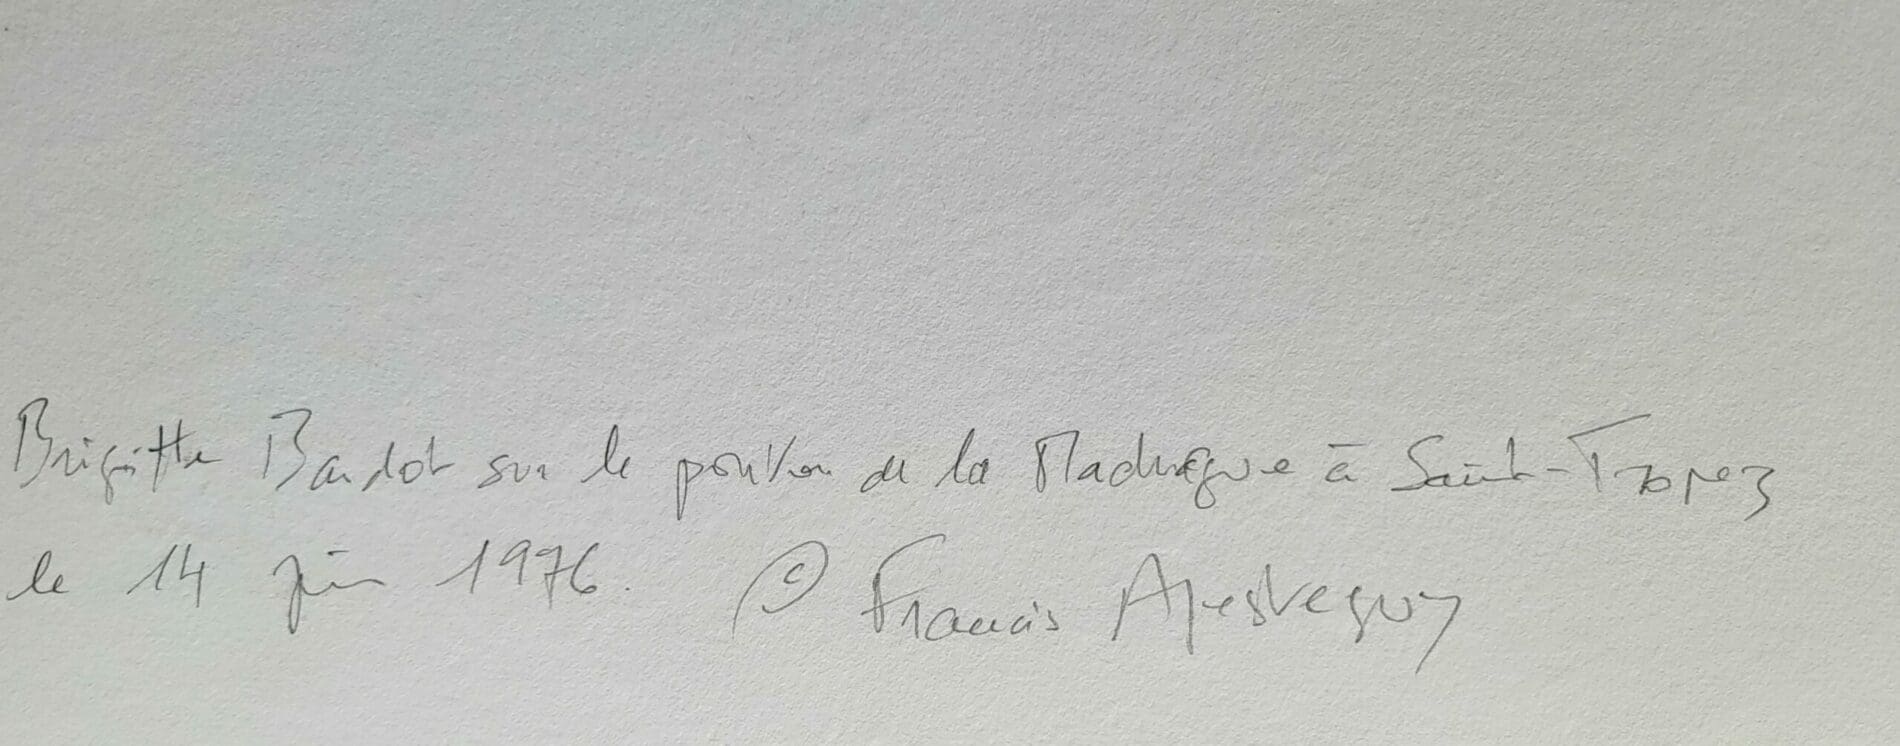 Brigitte Bardot sur le ponton de la Madrague à Saint-Tropez
le 14 juin 1976. © Francis Apesteguy